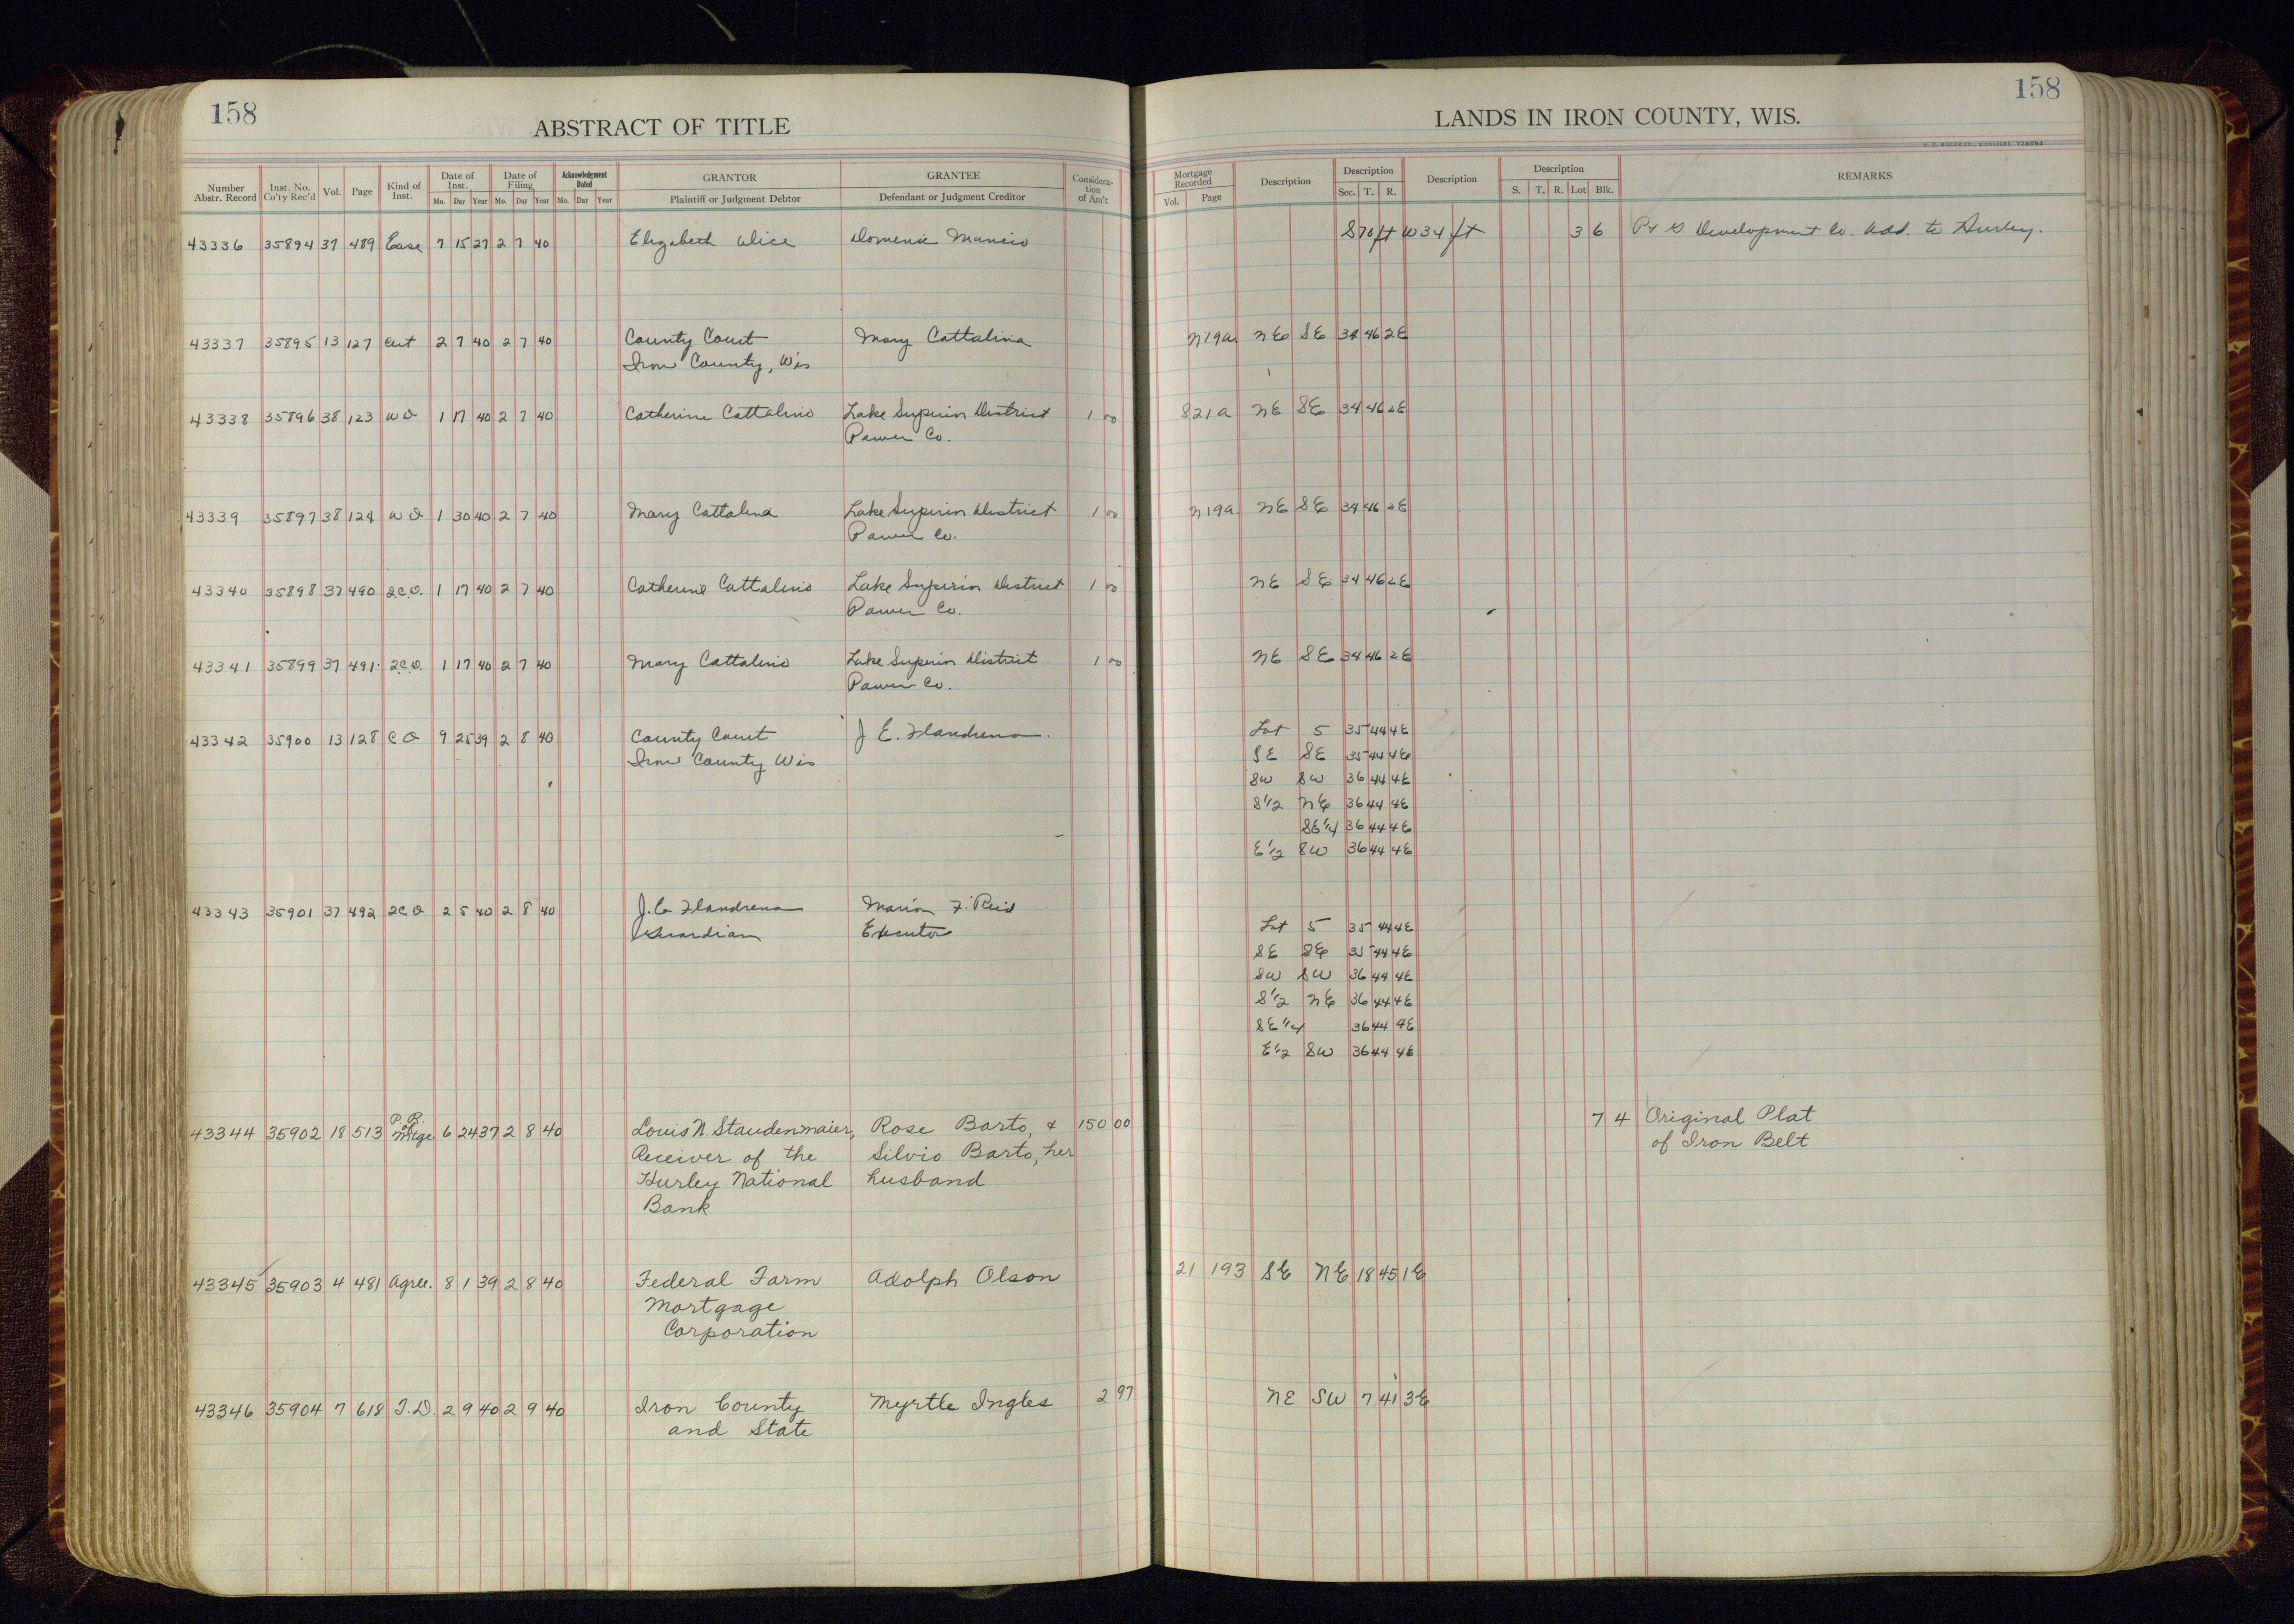 158
ABSTRACT OF TITLE
Number Abstr. Record Inst. No. Co'ty Rec'd Vol. Page Kind of Inst. Date of Inst. Mo. Day Year Date of Filing Mo. Day Year Acknowledgment Dated Mo. Day Year GRANTOR Plaintiff or Judgment Debtor GRANTEE Defendant or Judgment Creditor Consideration of Am't
43336 35894 37 489 Ease 7 15 27 2 7 40 Elizabeth Domenic
43337 35895 13 127 Cert 2 7 40 2 7 40 County Court Mary Cattalina
Iron County, Wis
43338 35896 38 123 WD 1 17 40 2 7 40 Catherine Cattalino Lake Superior District 1 00
Power Co.
43339 35897 38 124 WD 1 30 40 2 7 40 Mary Cattalina Lake Superior District 1 00
Power Co.
43340 35898 37 490 2.C.D. 1 17 40 2 7 40 Catherine Cattalino Lake Superior District 1 00
Power Co.
43341 35899 37 491 2.C.D. 1 17 40 2 7 40 Mary Cattalino Lake Superior District 1 00
Power Co.
43342 35900 13 128 C D 9 25 39 2 8 40 County Court J E. Flandrena
Iron County Wis
43343 35901 37 492 2C D 2 5 40 2 8 40 J. E. Flandrena Marion F. Reid
Guardian Executor
43344 35902 18 513 P.R. of Mtge 6 24 37 2 8 40 Louis N. Staudenmaier, Rose Barto, & 150 00
Receiver of the Silvio Barto, her
Hurley National husband
Bank
43345 35903 4 481 Agree. 8 1 39 2 8 40 Federal Farm Adolph Olson
Mortgage
Corporation
43346 35904 7 618 T.D. 2 9 40 2 9 40 Iron County Myrtle Ingles 2 97
and State
158
LANDS IN IRON COUNTY, WIS.
H. C. MILLER CO., MILWAUKEE Y28994
Mortgage Recorded Vol. Page Description Description Sec. T. R. Description Description S. T. R. Lot Blk. REMARKS
S70ft W34ft 3 6 Development Co. Add. to Hurley.
N19a. NE SE 34 46 2E
S21a NE SE 34 46 2E
N19a NE SE 34 46 2E
NE SE 34 46 2E
NE SE 34 46 2E
Lot 5 35 44 4E
SE SE 35 44 4E
SW SW 36 44 4E
S1/2 NE 36 44 4E
SE1/4 36 44 4E
E1/2 SW 36 44 4E
Lot 5 35 44 4E
SE SE 35 44 4E
SW SW 36 44 4E
S1/2 NE 36 44 4E
SE1/4 36 44 4E
E1/2 SW 36 44 4E
7 4 Original Plat
of Iron Belt
21 193 SE NE 18 45 1E
NE SW 7 41 3E